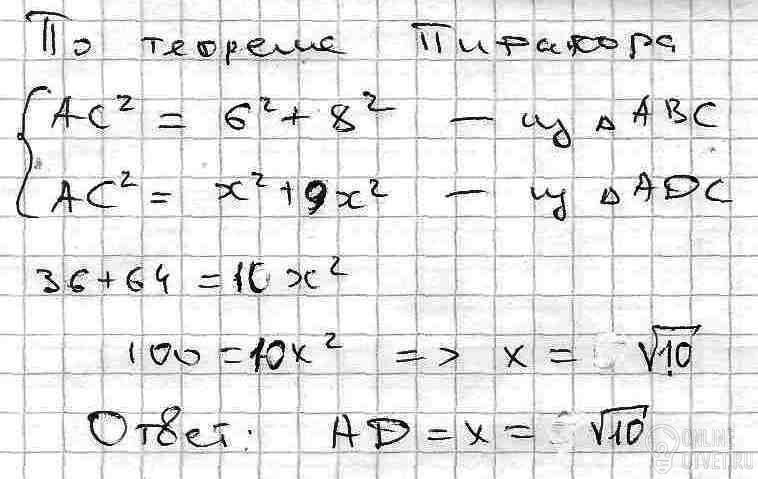 По теореме Пифагора
AC² = 6² + 8² — из △ ABC
AC² = x² + 9x² — из △ ADC
36 + 64 = 10x²
100 = 10x² => x = √10
Ответ: AD = x = √10
ONLINE
OTVET.RU